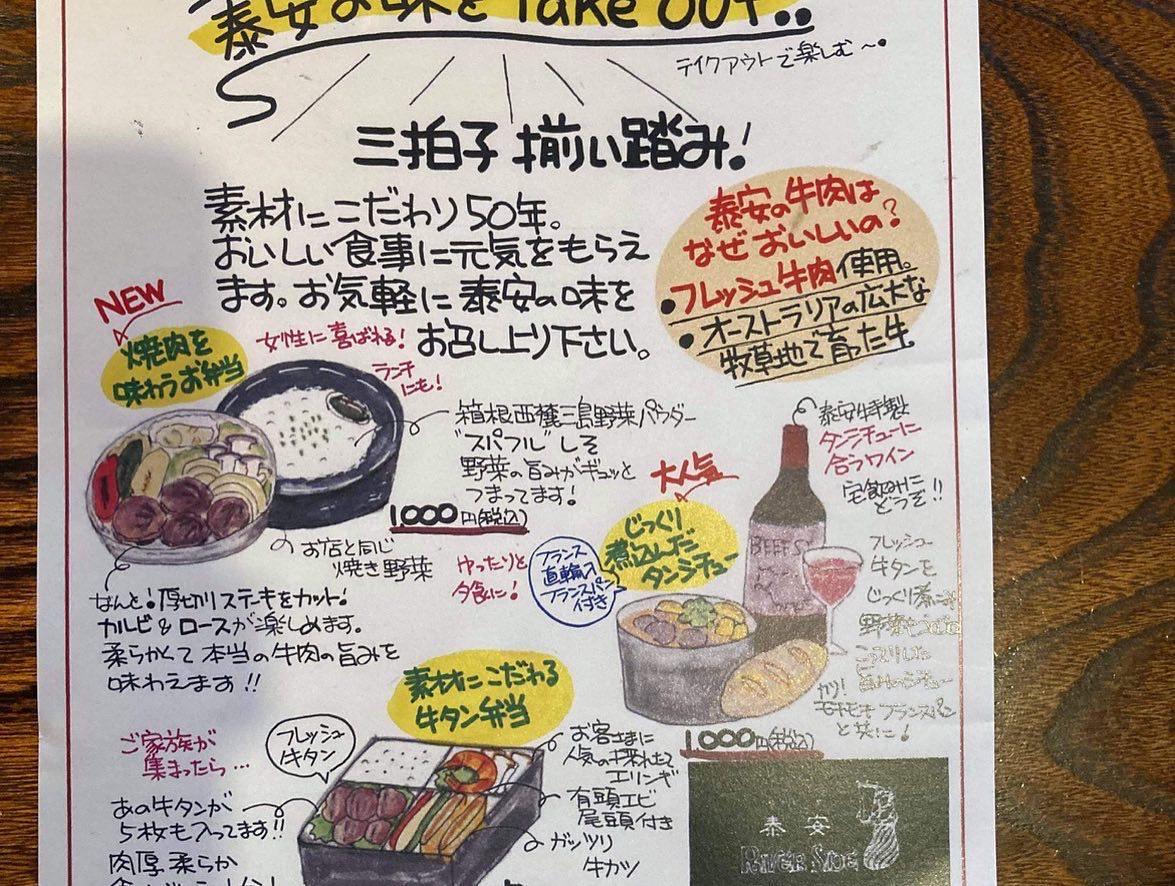 泰安の味を Take out..
テイクアウトで楽しむ〜
三拍子 揃い踏み!
素材にこだわり50年。
おいしい食事に元気をもらえ
ます。お気軽に泰安の味を
お召し上り下さい。
泰安の牛肉は
なぜおいしいの?
・フレッシュ牛肉使用。
・オーストラリアの広大な
牧草地で育った牛
NEW
焼肉を
味わうお弁当
女性に喜ばれる!
ランチ
にも!
箱根西麓三島野菜パウダー
"スパフル"しそ
野菜の旨みがギュッと
つまってます!
1000円(税込)
お店と同じ
焼き野菜
なんと!厚切りステーキをカット!
カルビ&ロースが楽しめます。
柔らかくて本当の牛肉の旨みを
味わえます!!
大人気
じっくり
煮込んだ
タンシチュー
ゆったりと
夕食に!
フランス
直輸入
フランスパン
付き
泰安特製
タンシチューに
合うワイン
宅飲みに
どうぞ!!
BEEF
フレッシュ
牛タンを
じっくり煮こみ
野菜も
こってりした
旨みのシチュー
カリ!
モチモチフランスパン
と共に!
1000円(税込)
素材にこだわる
牛タン弁当
ご家族が
集まったら…
フレッシュ
牛タン
あの牛タンが
5枚も入ってます!!
肉厚柔らか
お客さまに
人気の採れたて
エリンギ
有頭エビ
尾頭付き
ガッツリ
牛カツ
泰安
RIVER SIDE